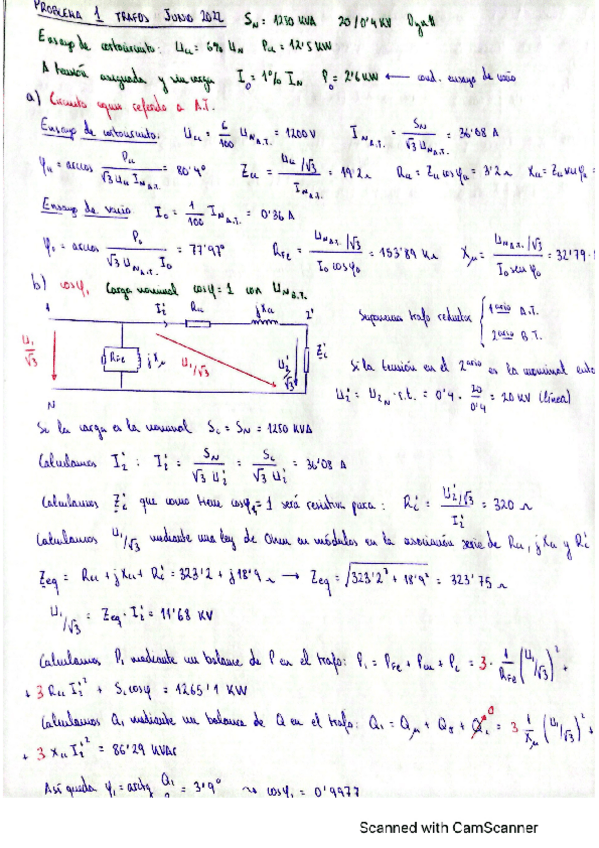 PROBLEMA 1 TRAFOS JUNIO 2022 SN = 1250 KVA 20/0'4 KV Dyn11
Ensayo de cortocircuito: Ucc = 6% UN Pcc = 12'5 KW
A tensión asignada y sin carga I0 = 1% IN P0 = 2'6 KW ← cond. ensayo de vacío
a) Circuito equiv referido a A.T.
Ensayo de cortocircuito: Ucc = 6/100 UN A.T. = 1200 V IN A.T. = SN/√3 UN A.T. = 36'08 A
φcc = arccos Pcc/√3 Ucc IN A.T. = 80'4° Zcc = Ucc/√3/IN A.T. = 19'2 Ω Rcc = Zcc cosφcc = 3'2 Ω Xcc = Zcc senφcc =
Ensayo de vacío I0 = 1/100 IN A.T. = 0'36 A
φ0 = arccos P0/√3 UN A.T. I0 = 77'97° RFe = UN A.T./√3/I0 cosφ0 = 153'89 KΩ Xμ = UN A.T./√3/I0 senφ0 = 32'79
b) cosφ1 Carga nominal cosφ = 1 con UN B.T.
I2' Rcc jXcc 2'
U1/√3 RFe jXμ U1/√3 U2'/√3 Zc'
N
Suponemos trafo reductor { 1ario A.T.
2ario B.T.
Si la tensión en el 2ario es la nominal
U2' = U2N · r.t. = 0'4 · 20/0'4 = 20 KV (línea)
Si la carga es la nominal Sc = SN = 1250 KVA
Calculamos I2' : I2' = SN/√3 U2' = Sc/√3 U2' = 36'08 A
Calculamos Zc' que como tiene cosφ = 1 será resistiva pura: Rc' = U2'/√3/I2' = 320 Ω
Calculamos U1/√3 mediante una ley de Ohm en módulos en la asociación serie de Rcc, jXcc y Rc'
Zeq = Rcc + jXcc + Rc' = 323'2 + j18'9 Ω → Zeq = √323'2² + 18'9² = 323'75 Ω
U1/√3 = Zeq · I2' = 11'68 KV
Calculamos P1 mediante un balance de P en el trafo: P1 = PFe + Pcu + Pc = 3 · 1/RFe (U1/√3)² +
+ 3 Rcc I2'² + Sc cosφ = 1265'1 KW
Calculamos Q1 mediante un balance de Q en el trafo: Q1 = Qμ + Qδ + Qc 0 = 3 1/Xμ (U1/√3)² +
+ 3 Xcc I2'² = 86'29 KVAr
Así queda φ1 = arctg Q1 = 3'9° → cosφ1 = 0'9977
Scanned with CamScanner